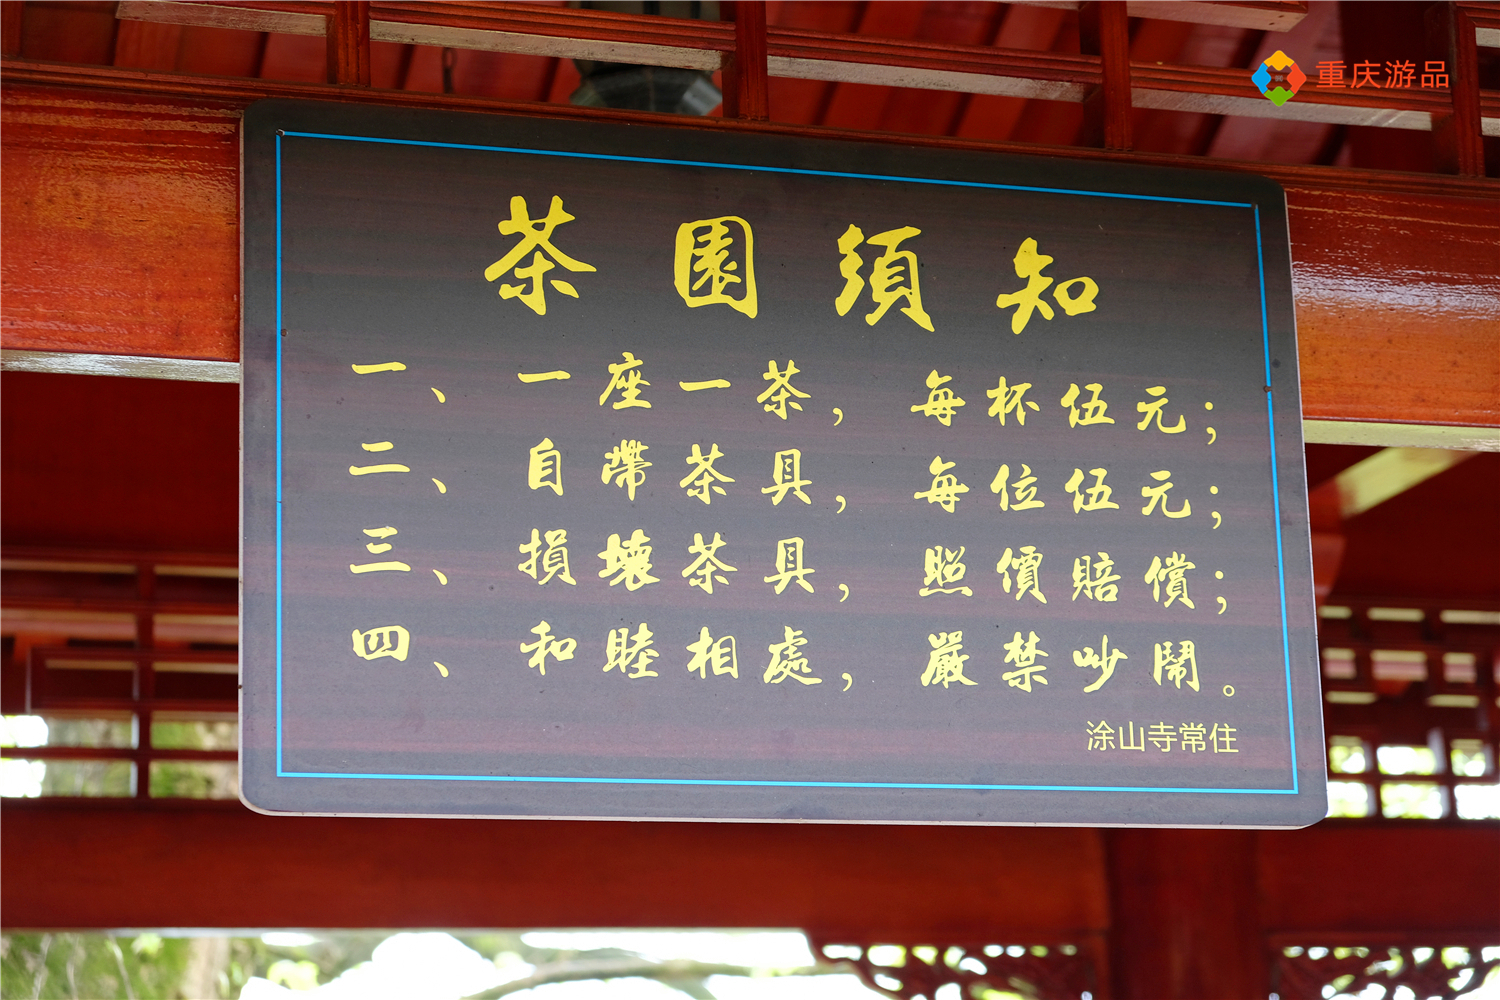 重庆游品
茶園須知
一、一座一茶，每杯伍元；
二、自帶茶具，每位伍元；
三、損壞茶具，照價賠償；
四、和睦相處，嚴禁吵鬧。
涂山寺常住